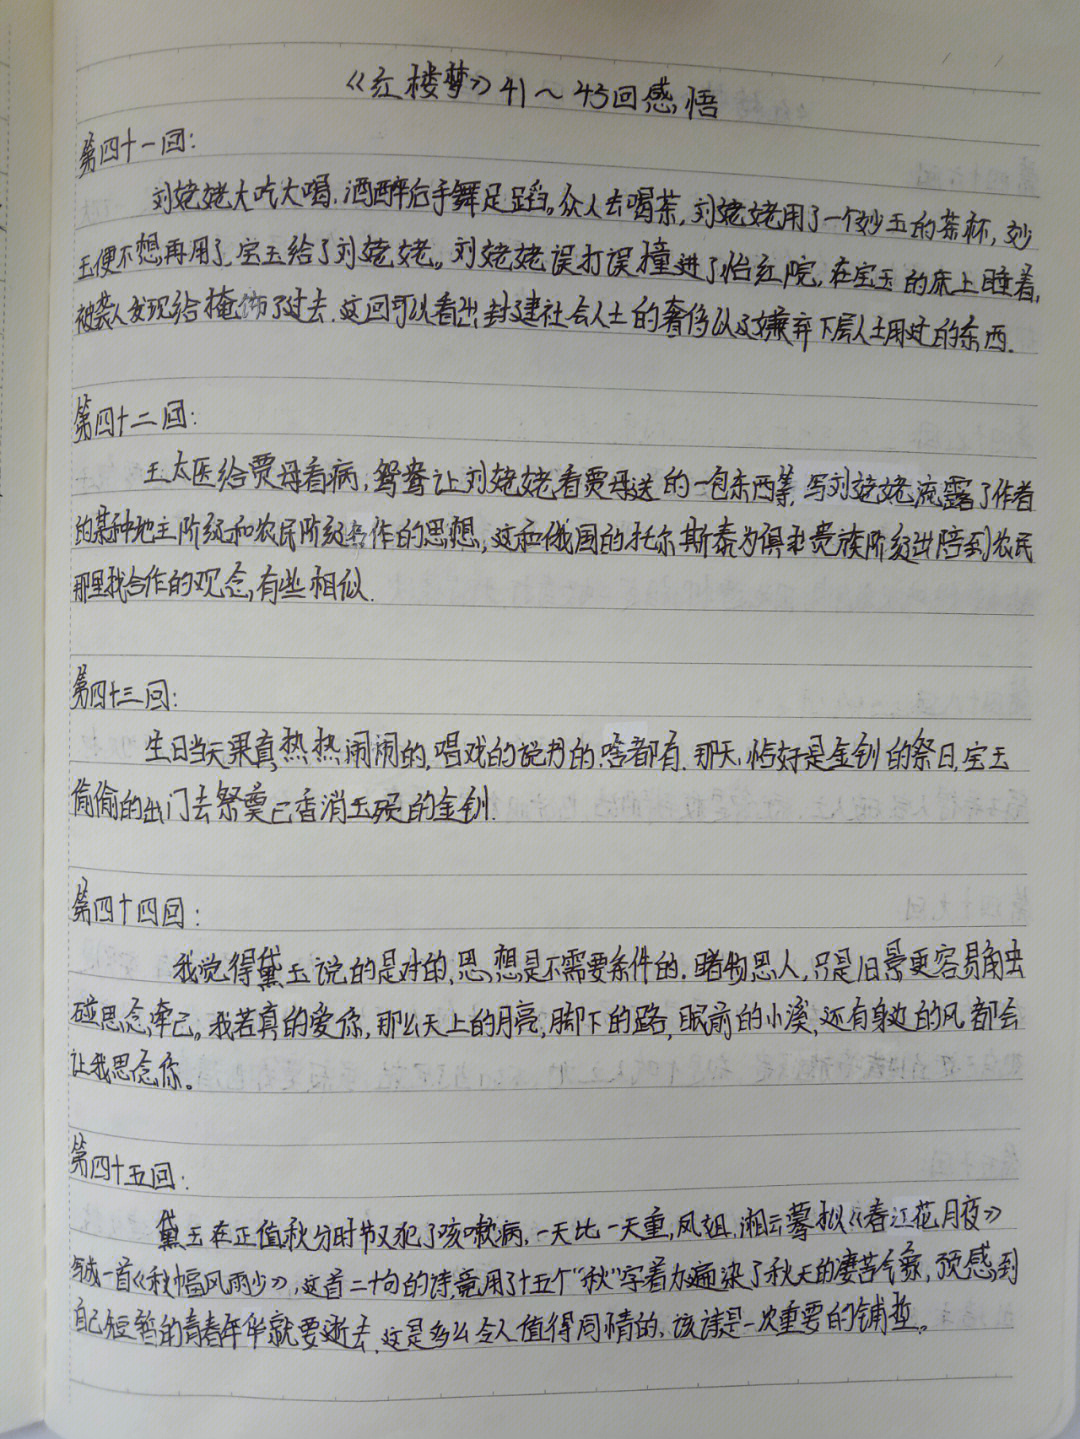 《红楼梦》41～45回感悟
第四十一回：
刘姥姥大吃大喝，酒醉后手舞足蹈。众人去喝茶，刘姥姥用了一个妙玉的茶杯，妙
玉便不想再用了，宝玉给了刘姥姥。刘姥姥误打误撞进了怡红院，在宝玉的床上睡着，
被袭人发现给掩饰了过去，这回可以看出封建社会人士的奢侈以及嫌弃下层人士用过的东西.
第四十二回：
王太医给贾母看病，鸳鸯让刘姥姥看贾母送的一包东西等，写刘姥姥流露了作者
的某种地主阶级和农民阶级合作的思想，这和俄国的托尔斯泰为俱乐贵族阶级出陪到农民
那里找合作的观念，有些相似.
第四十三回：
生日当天果真热热闹闹的，唱戏的说书的，啥都有.那天，恰好是金钏的祭日，宝玉
偷偷的出门去祭奠已香消玉殒的金钏.
第四十四回：
我觉得黛玉说的是对的，思想是不需要条件的.睹物思人，只是旧景更容易角虫
碰思念牵己。我若真的爱你，那么天上的月亮，脚下的路，眼前的小溪，还有身边的风都会
让我思念你。
第四十五回：
黛玉在正值秋分时节又犯了咳嗽病，一天比一天重，凤姐，湘云摹拟《春江花月夜》
写成一首《秋幅风雨少》，这首二十句的诗，竟用了十五个“秋”字着力渲染了秋天的凄苦气象，预感到
自己短暂的青春年华就要逝去，这是多么令人值得同情的，该诗是一次重要的铺垫。